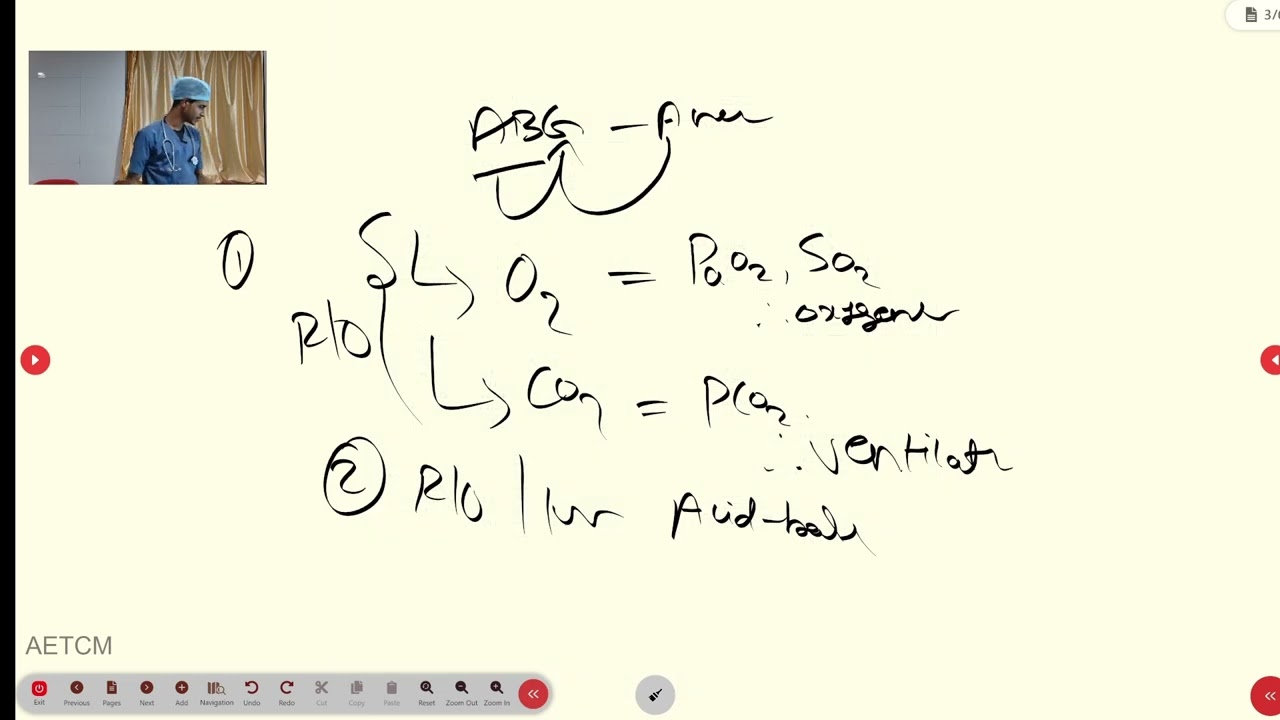 3/
ABG -
① O2 = PaO2, SO2
R/O ∴ oxygen
CO2 = PCO2
∴ ventilat
② R/O Acid-base
AETCM
Exit Previous Pages Next Add Navigation Undo Redo Cut Copy Paste Reset Zoom Out Zoom In